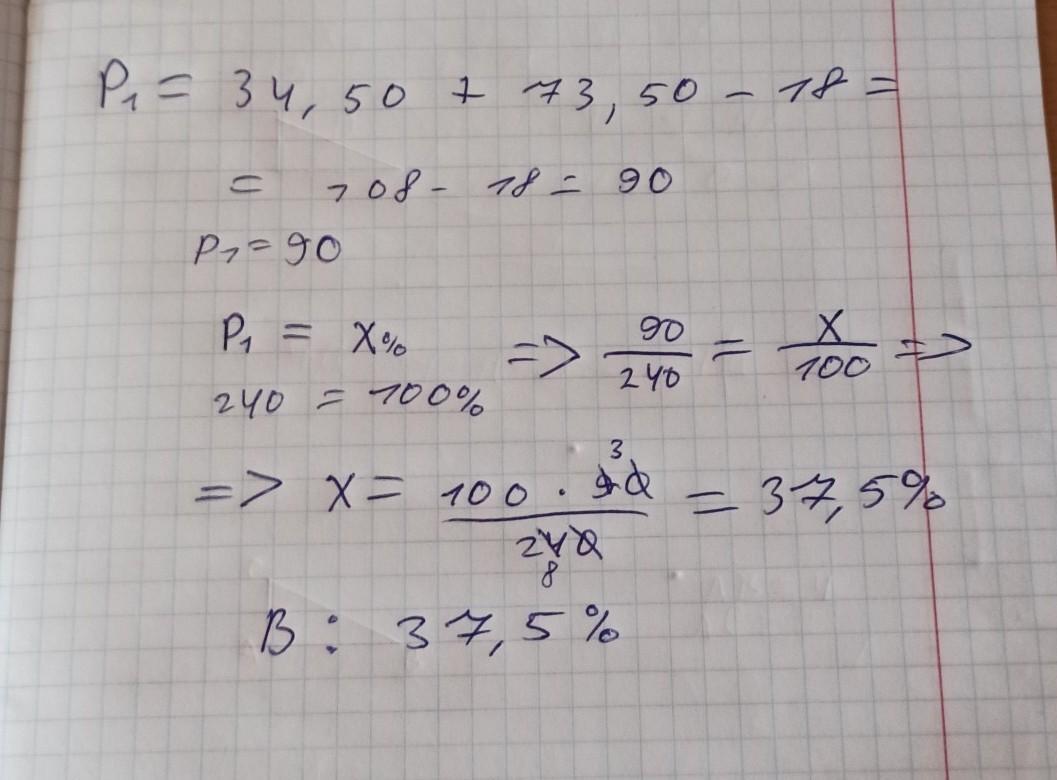 P₁ = 34,50 + 73,50 - 18 =
= 108 - 18 = 90
P₁ = 90
P₁ = X% => 90/240 = X/100 =>
240 = 100%
=> X = 100 · 90/240 = 37,5%
3
8
B: 37,5%